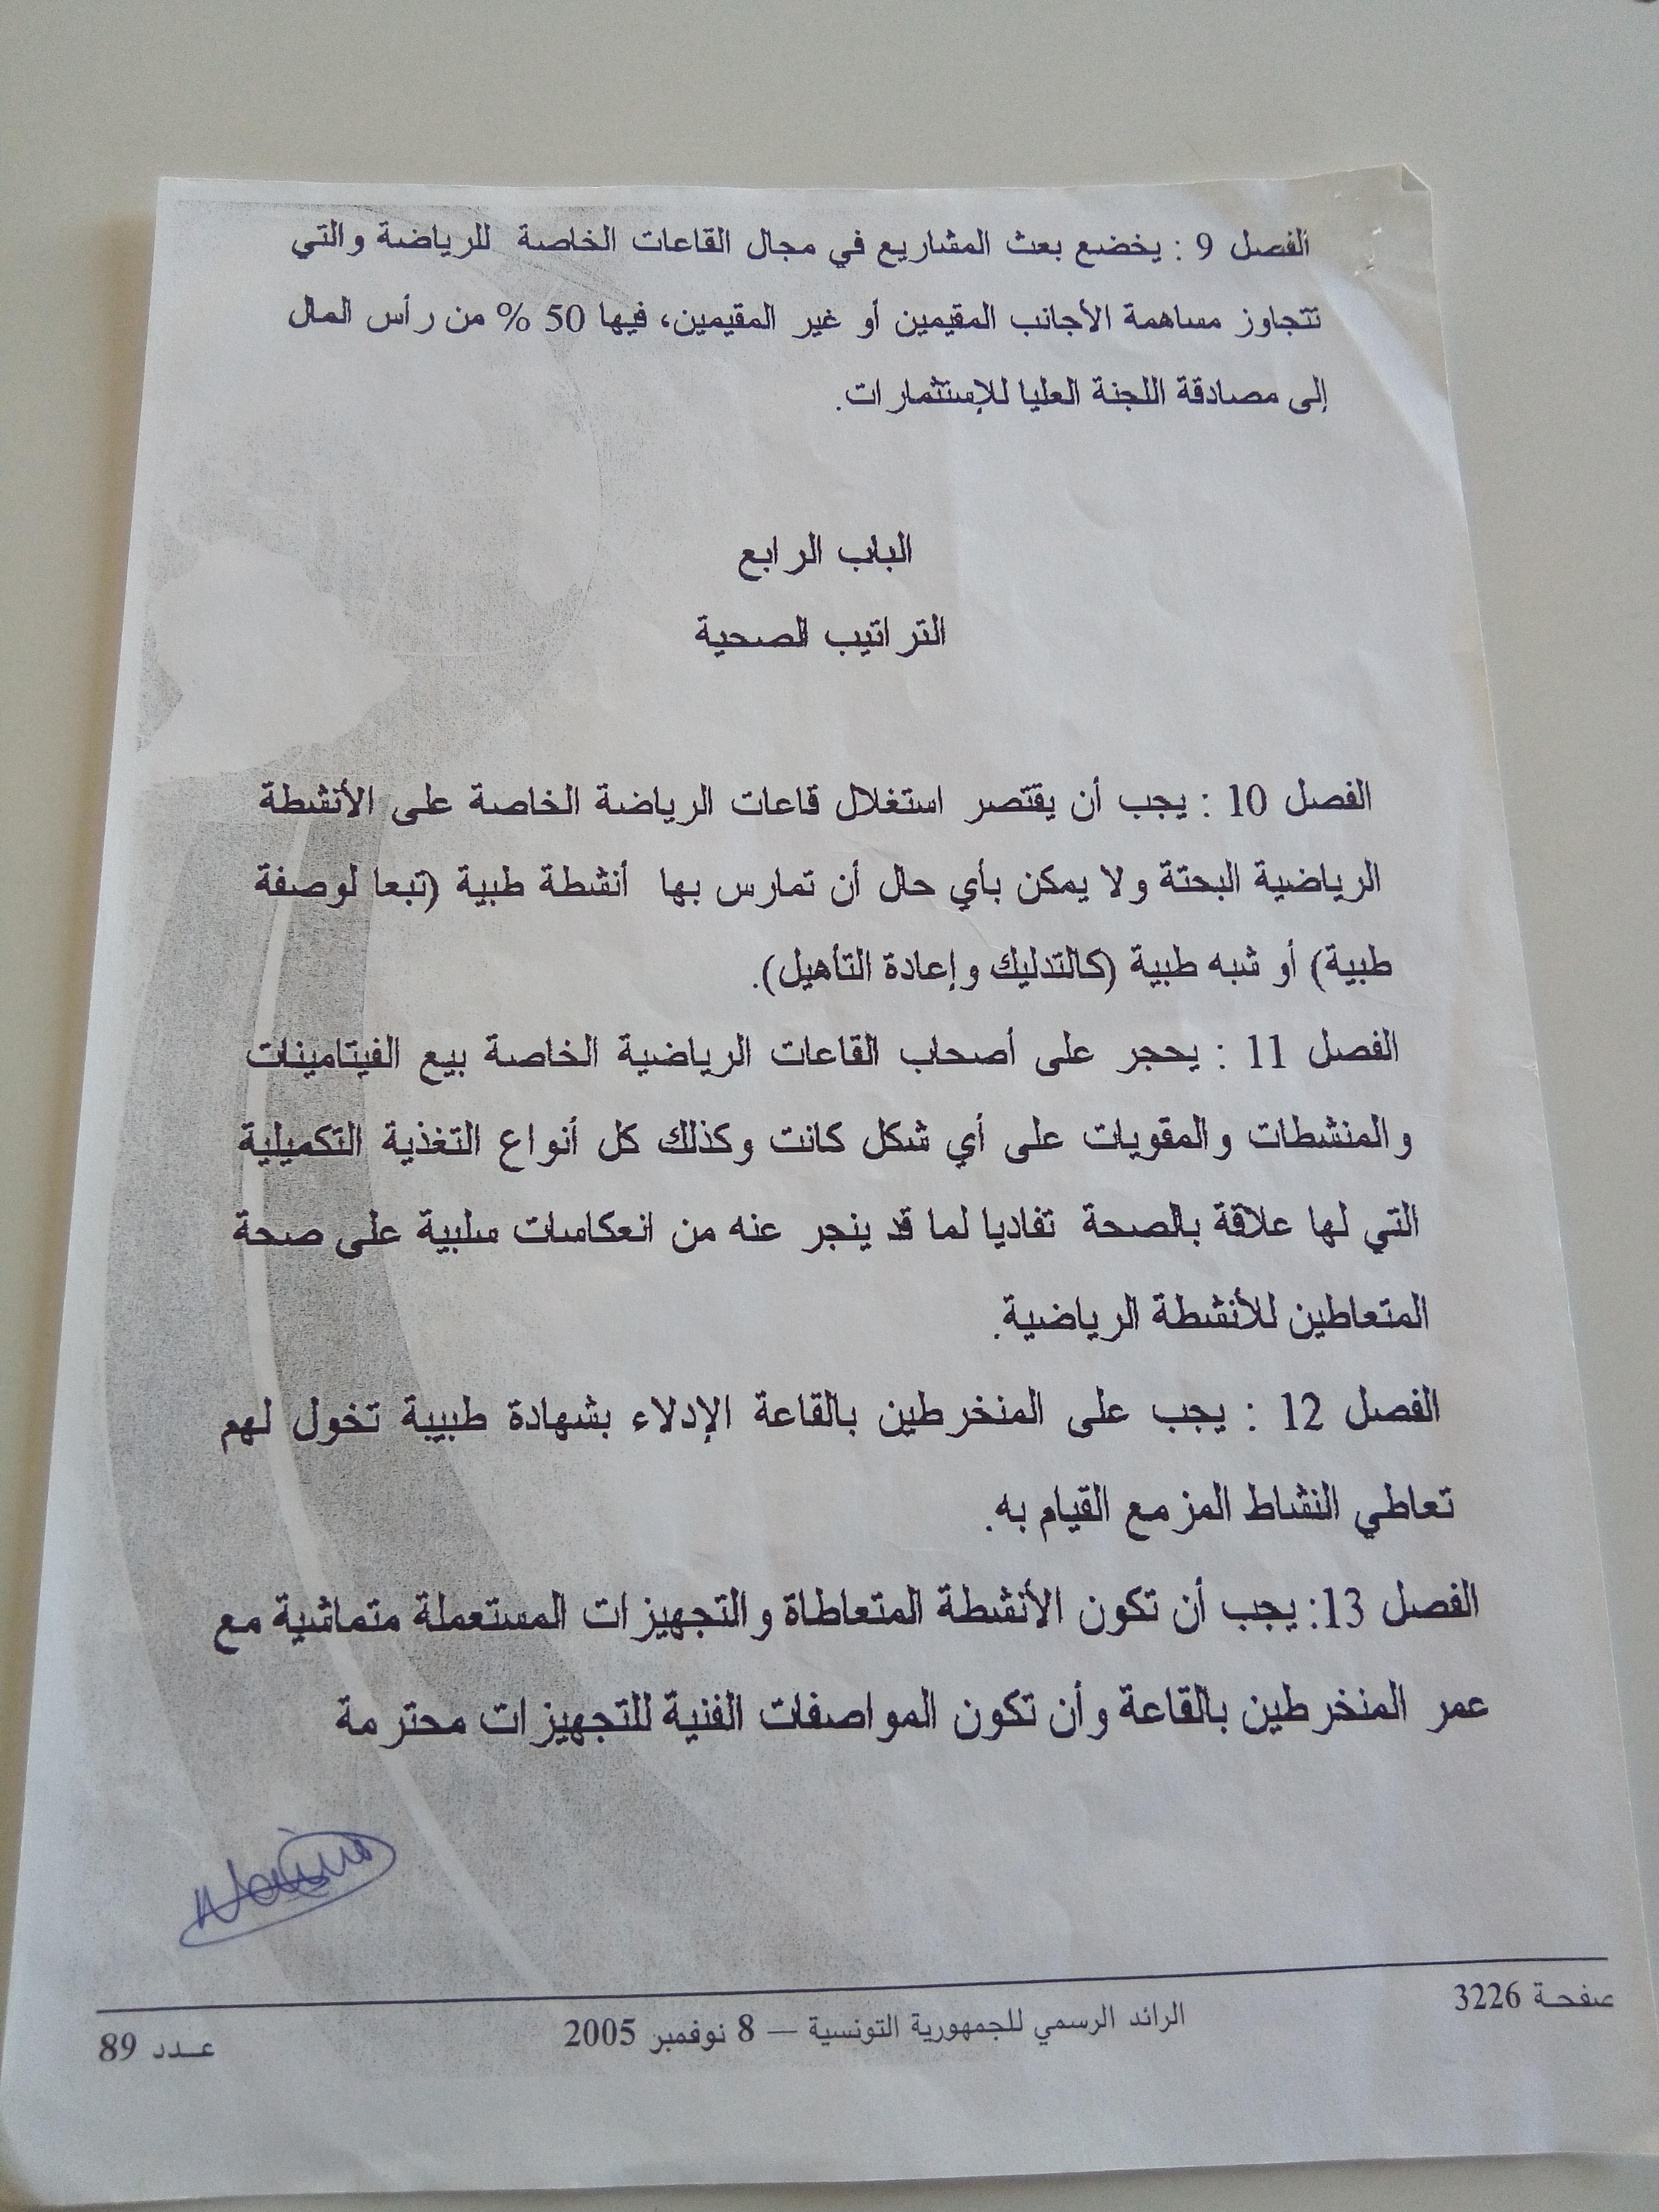 الفصل 9 : يخضع بعث المشاريع في مجال القاعات الخاصة للرياضة والتي
تتجاوز مساهمة الأجانب المقيمين أو غير المقيمين، فيها 50 % من رأس المال
إلى مصادقة اللجنة العليا للإستثمارات.
الباب الرابع
التراتيب الصحية
الفصل 10 : يجب أن يقتصر استغلال قاعات الرياضة الخاصة على الأنشطة
الرياضية البحتة ولا يمكن بأي حال أن تمارس بها أنشطة طبية (تبعا لوصفة
طبية) أو شبه طبية (كالتدليك وإعادة التأهيل).
الفصل 11 : يحجر على أصحاب القاعات الرياضية الخاصة بيع الفيتامينات
والمنشطات والمقويات على أي شكل كانت وكذلك كل أنواع التغذية التكميلية
التي لها علاقة بالصحة تفاديا لما قد ينجر عنه من انعكاسات سلبية على صحة
المتعاطين للأنشطة الرياضية.
الفصل 12 : يجب على المنخرطين بالقاعة الإدلاء بشهادة طبيبة تخول لهم
تعاطي النشاط المزمع القيام به.
الفصل 13: يجب أن تكون الأنشطة المتعاطاة والتجهيزات المستعملة متماشية مع
عمر المنخرطين بالقاعة وأن تكون المواصفات الفنية للتجهيزات محترمة
صفحة 3226
الرائد الرسمي للجمهورية التونسية — 8 نوفمبر 2005
عـــدد 89